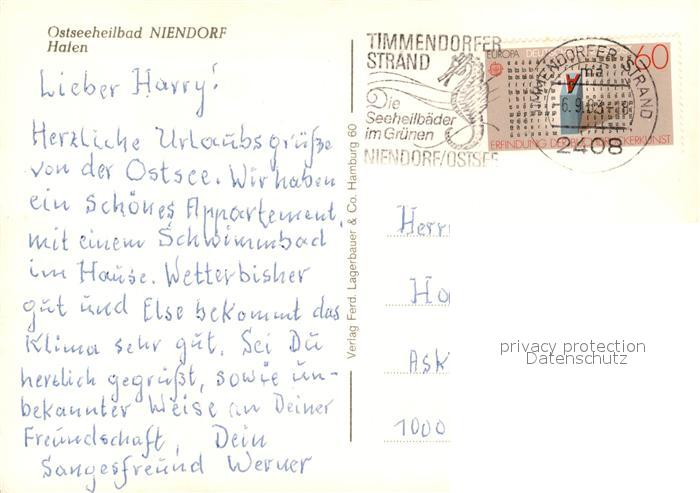 Ostseeheilbad NIENDORF
Hafen
Lieber Harry!
Herzliche Urlaubsgrüße
von der Ostsee. Wir haben
ein schönes Appartement,
mit einem Schwimmbad
im Hause. Wetter bisher
gut und Else bekommt das
Klima sehr gut. Sei Du
herzlich gegrüßt, sowie un-
bekannter Weise an Deiner
Freundschaft, Dein
Sangesfreund Werner
Verlag Ferd. Lagerbauer & Co. Hamburg 60
TIMMENDORFER
STRAND
Die
Seeheilbäder
im Grünen
NIENDORF/OSTSEE
EUROPA DEUTSCHE
60
ERFINDUNG DER BUCHDRUCKERKUNST
TIMMENDORFER STRAND
ma
6.9.83-8
2408
Herr
Ha
Ask
1000
privacy protection
Datenschutz